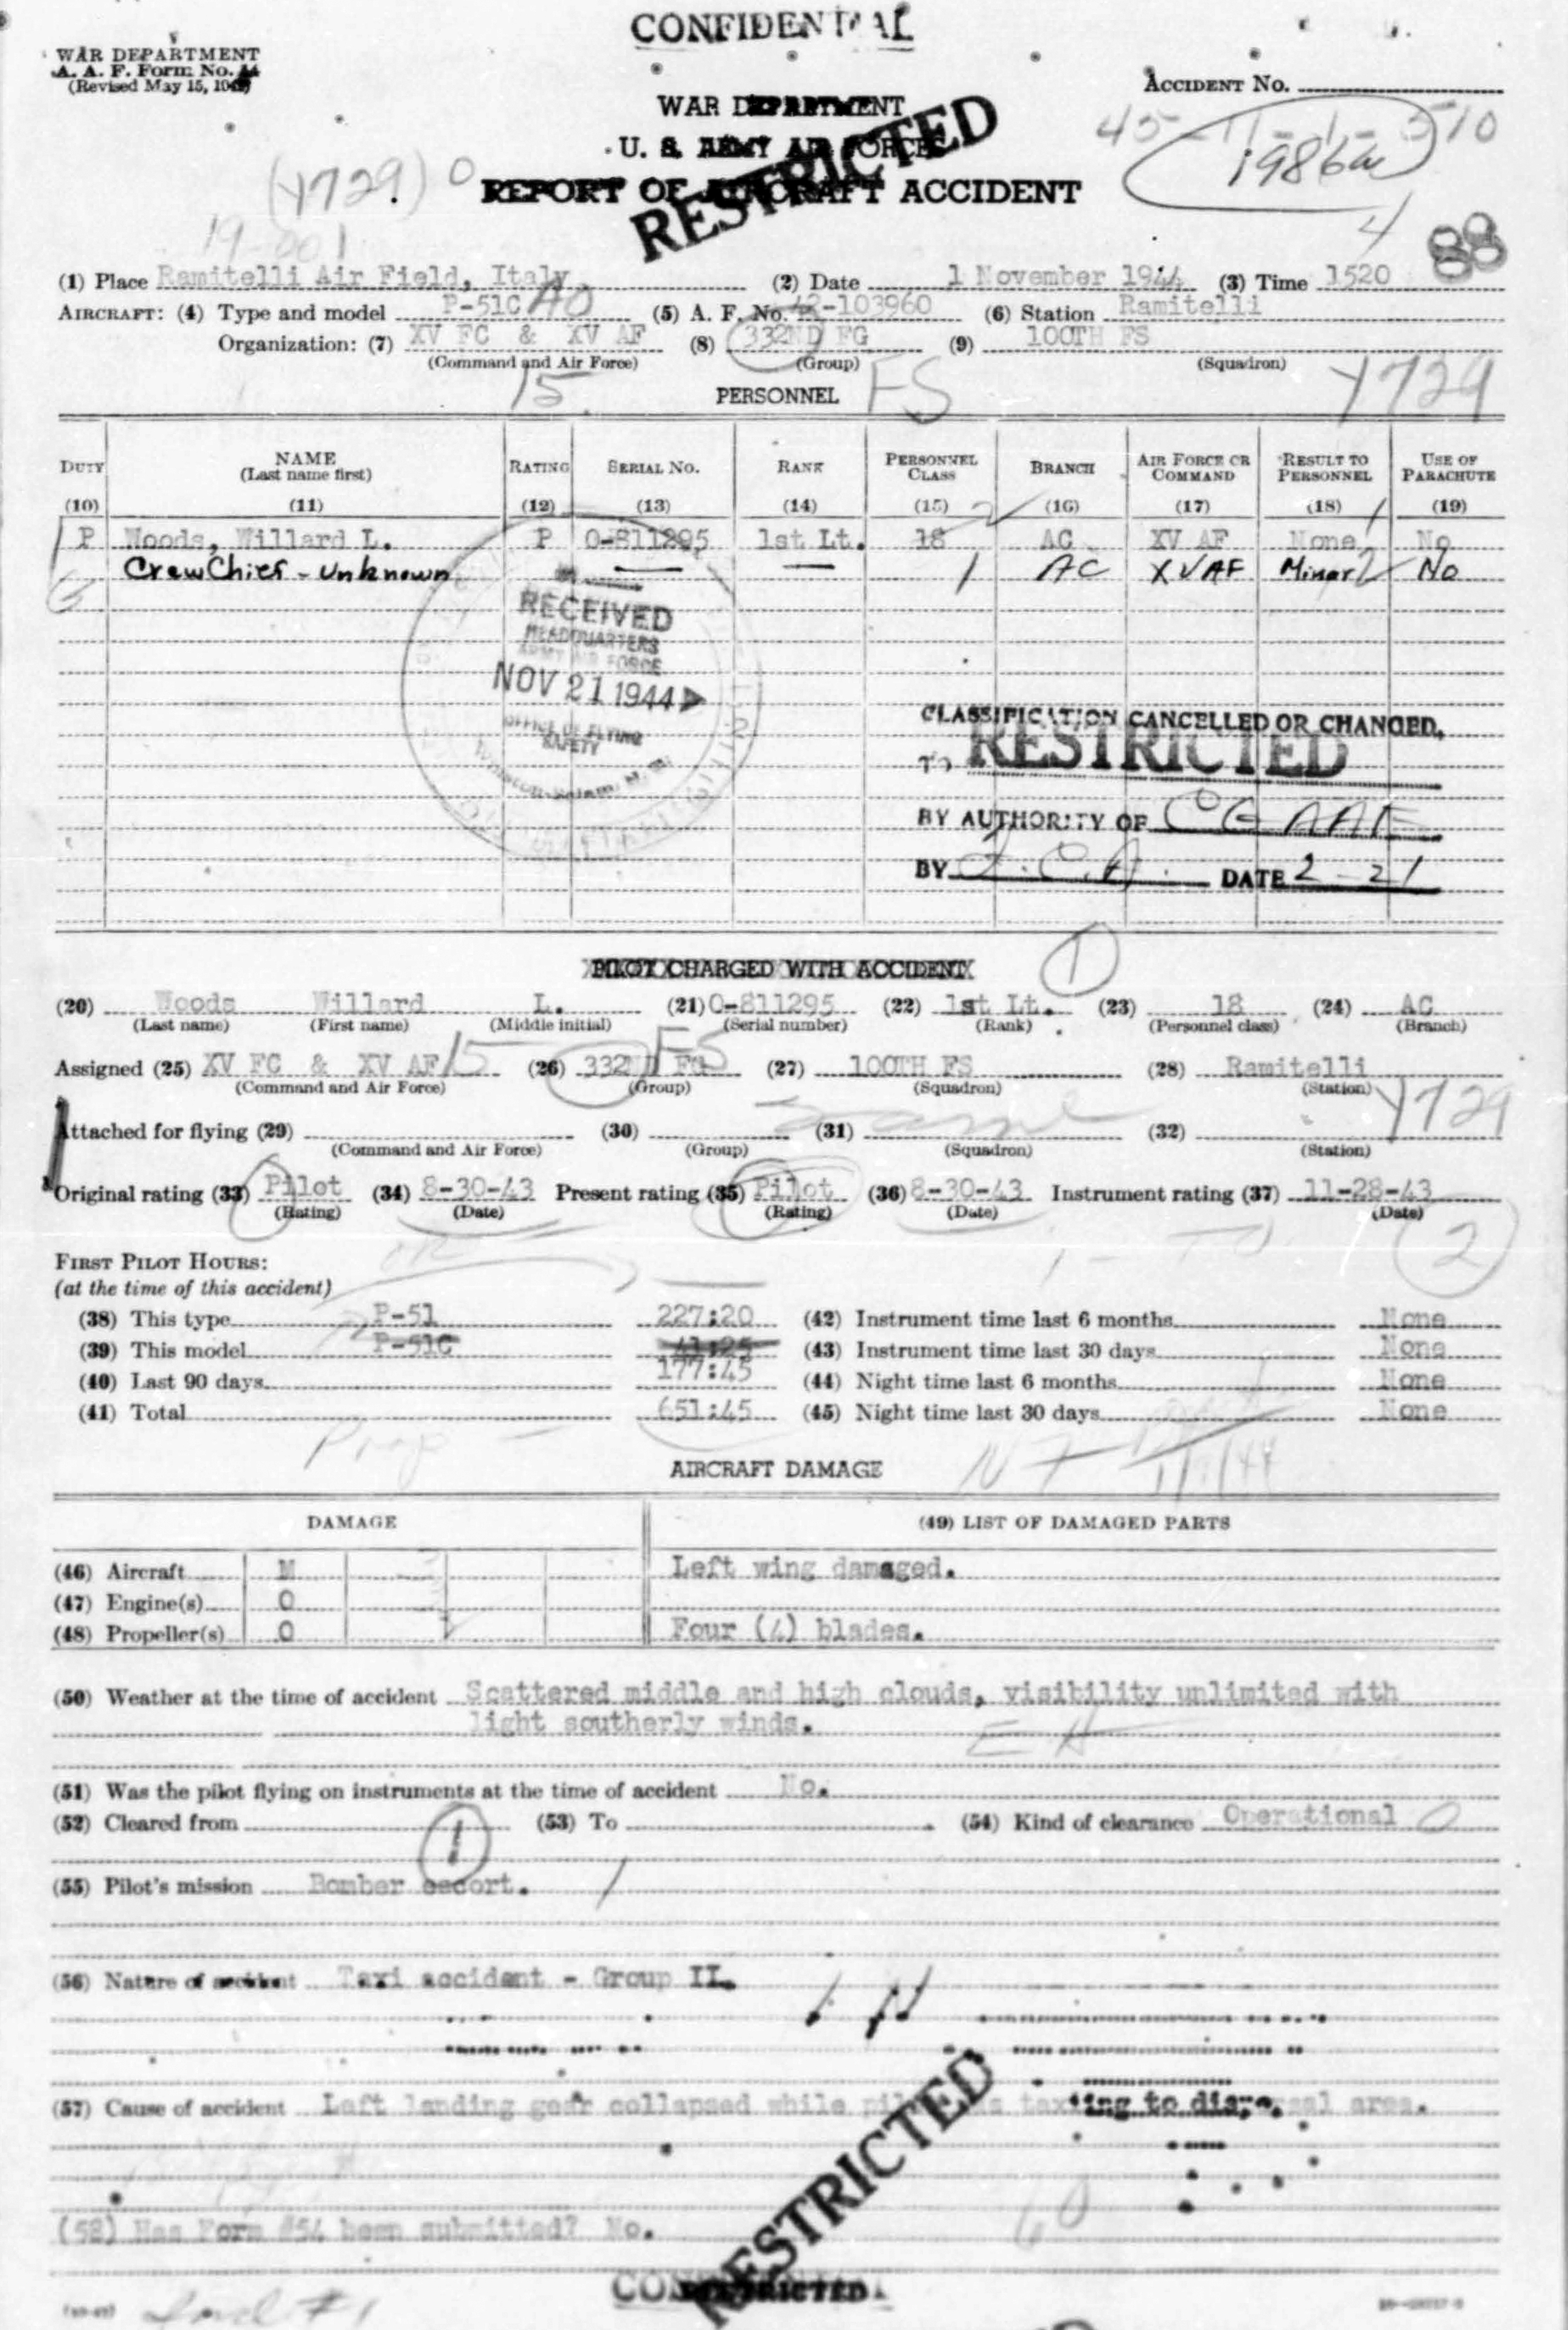 CONFIDENTIAL
WAR DEPARTMENT
A. A. F. Form No. 14
(Revised May 15, 1942)
ACCIDENT No.
45-11-1-510
WAR DEPARTMENT
U. S. ARMY AIR FORCES
REPORT OF AIRCRAFT ACCIDENT
RESTRICTED
(Y729) 0
1986w
4
88
19-001
(1) Place Ramitelli Air Field, Italy (2) Date 1 November 1944 (3) Time 1520
AIRCRAFT: (4) Type and model P-51C AO (5) A. F. No. 42-103960 (6) Station Ramitelli
Organization: (7) XV FC & XV AF (8) 332ND FG (9) 100TH FS
(Command and Air Force) (Group) (Squadron)
15 FS Y729
PERSONNEL
DUTY NAME (Last name first) RATING SERIAL No. RANK PERSONNEL CLASS BRANCH AIR FORCE OR COMMAND RESULT TO PERSONNEL USE OF PARACHUTE
(10) (11) (12) (13) (14) (15) (16) (17) (18) (19)
P Woods, Willard L. P O-811295 1st Lt. 18 2 AC XV AF None 1 No
G Crew Chief - Unknown — — 1 AC XV AF Minor 2 No
RECEIVED
HEADQUARTERS
ARMY AIR FORCE
NOV 21 1944
OFFICE OF FLYING
SAFETY
Winston-Salem, N. C.
CLASSIFICATION CANCELLED OR CHANGED.
TO RESTRICTED
BY AUTHORITY OF CG AAF
BY DATE 2-21
PILOT CHARGED WITH ACCIDENT
1
(20) Woods Willard L. (21) O-811295 (22) 1st Lt. (23) 18 (24) AC
(Last name) (First name) (Middle initial) (Serial number) (Rank) (Personnel class) (Branch)
Assigned (25) XV FC & XV AF 15 (26) 332ND FG FS (27) 100TH FS (28) Ramitelli
(Command and Air Force) (Group) (Squadron) (Station)
Y729
Attached for flying (29) (30) (31) same (32)
(Command and Air Force) (Group) (Squadron) (Station)
Original rating (33) Pilot (34) 8-30-43 Present rating (35) Pilot (36) 8-30-43 Instrument rating (37) 11-28-43
(Rating) (Date) (Rating) (Date) (Date)
2
FIRST PILOT HOURS:
(at the time of this accident)
(38) This type P-51 227:20 (42) Instrument time last 6 months None
(39) This model P-51C 41:25 (43) Instrument time last 30 days None
(40) Last 90 days 177:45 (44) Night time last 6 months None
(41) Total 651:45 (45) Night time last 30 days None
AIRCRAFT DAMAGE
DAMAGE (49) LIST OF DAMAGED PARTS
(46) Aircraft M Left wing damaged.
(47) Engine(s) O
(48) Propeller(s) O Four (4) blades.
(50) Weather at the time of accident Scattered middle and high clouds, visibility unlimited with
light southerly winds.
(51) Was the pilot flying on instruments at the time of accident No.
(52) Cleared from (53) To (54) Kind of clearance Operational
1
(55) Pilot's mission Bomber escort.
(56) Nature of accident Taxi accident - Group II.
(57) Cause of accident Left landing gear collapsed while pilot was taxiing to dispersal area.
RESTRICTED
(58) Has Form #54 been submitted? No.
60
CONFIDENTIAL
RESTRICTED